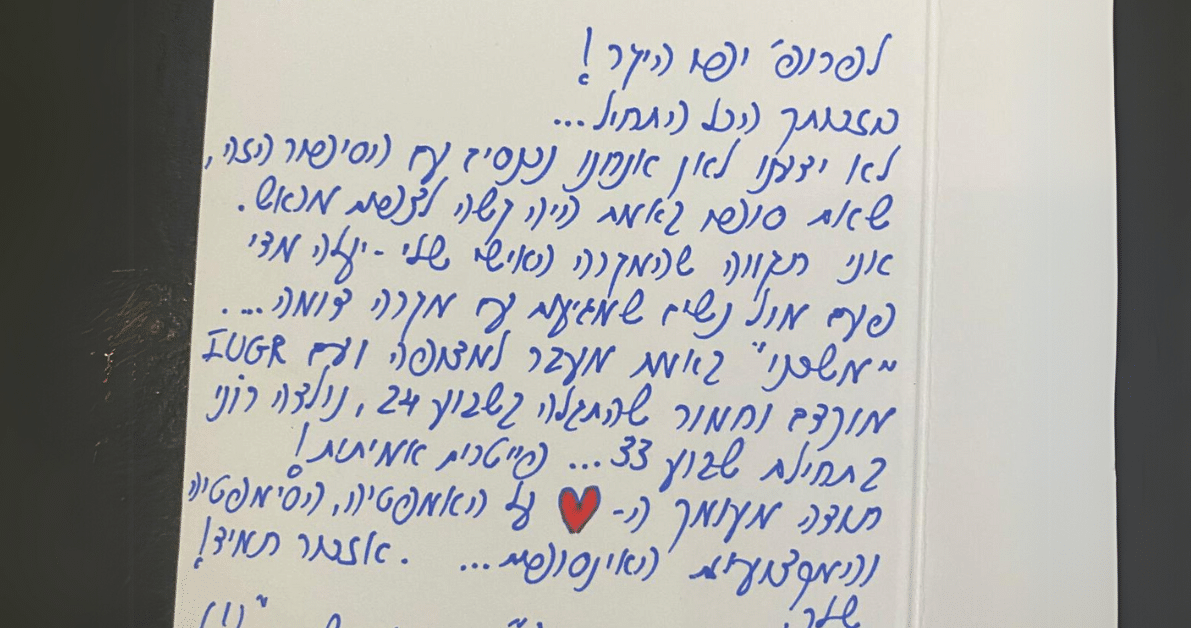 לפרופ' יפה היקר!
בזכותך הכל התחיל...
לא ידענו לאן אנחנו נכנסים עם הסיפור הזה,
שאת סופו באמת היה קשה לצפות מראש.
אני תקווה שהמקרה האישי שלי - יעלה מדי
פעם מול נשים שמגיעות עם מקרה דומה....
"משכתי" באמת מעבר למצופה ועם IUGR
מוקדם וחמור שהתגלה בשבוע 24, נולדה רוני
בתחילת שבוע 33... פייטרית אמיתית!
תודה מעומק ה- על האמפטיה, הסימפטיה
והמקצועיות האינסופית... אזכור תמיד!
שלך,